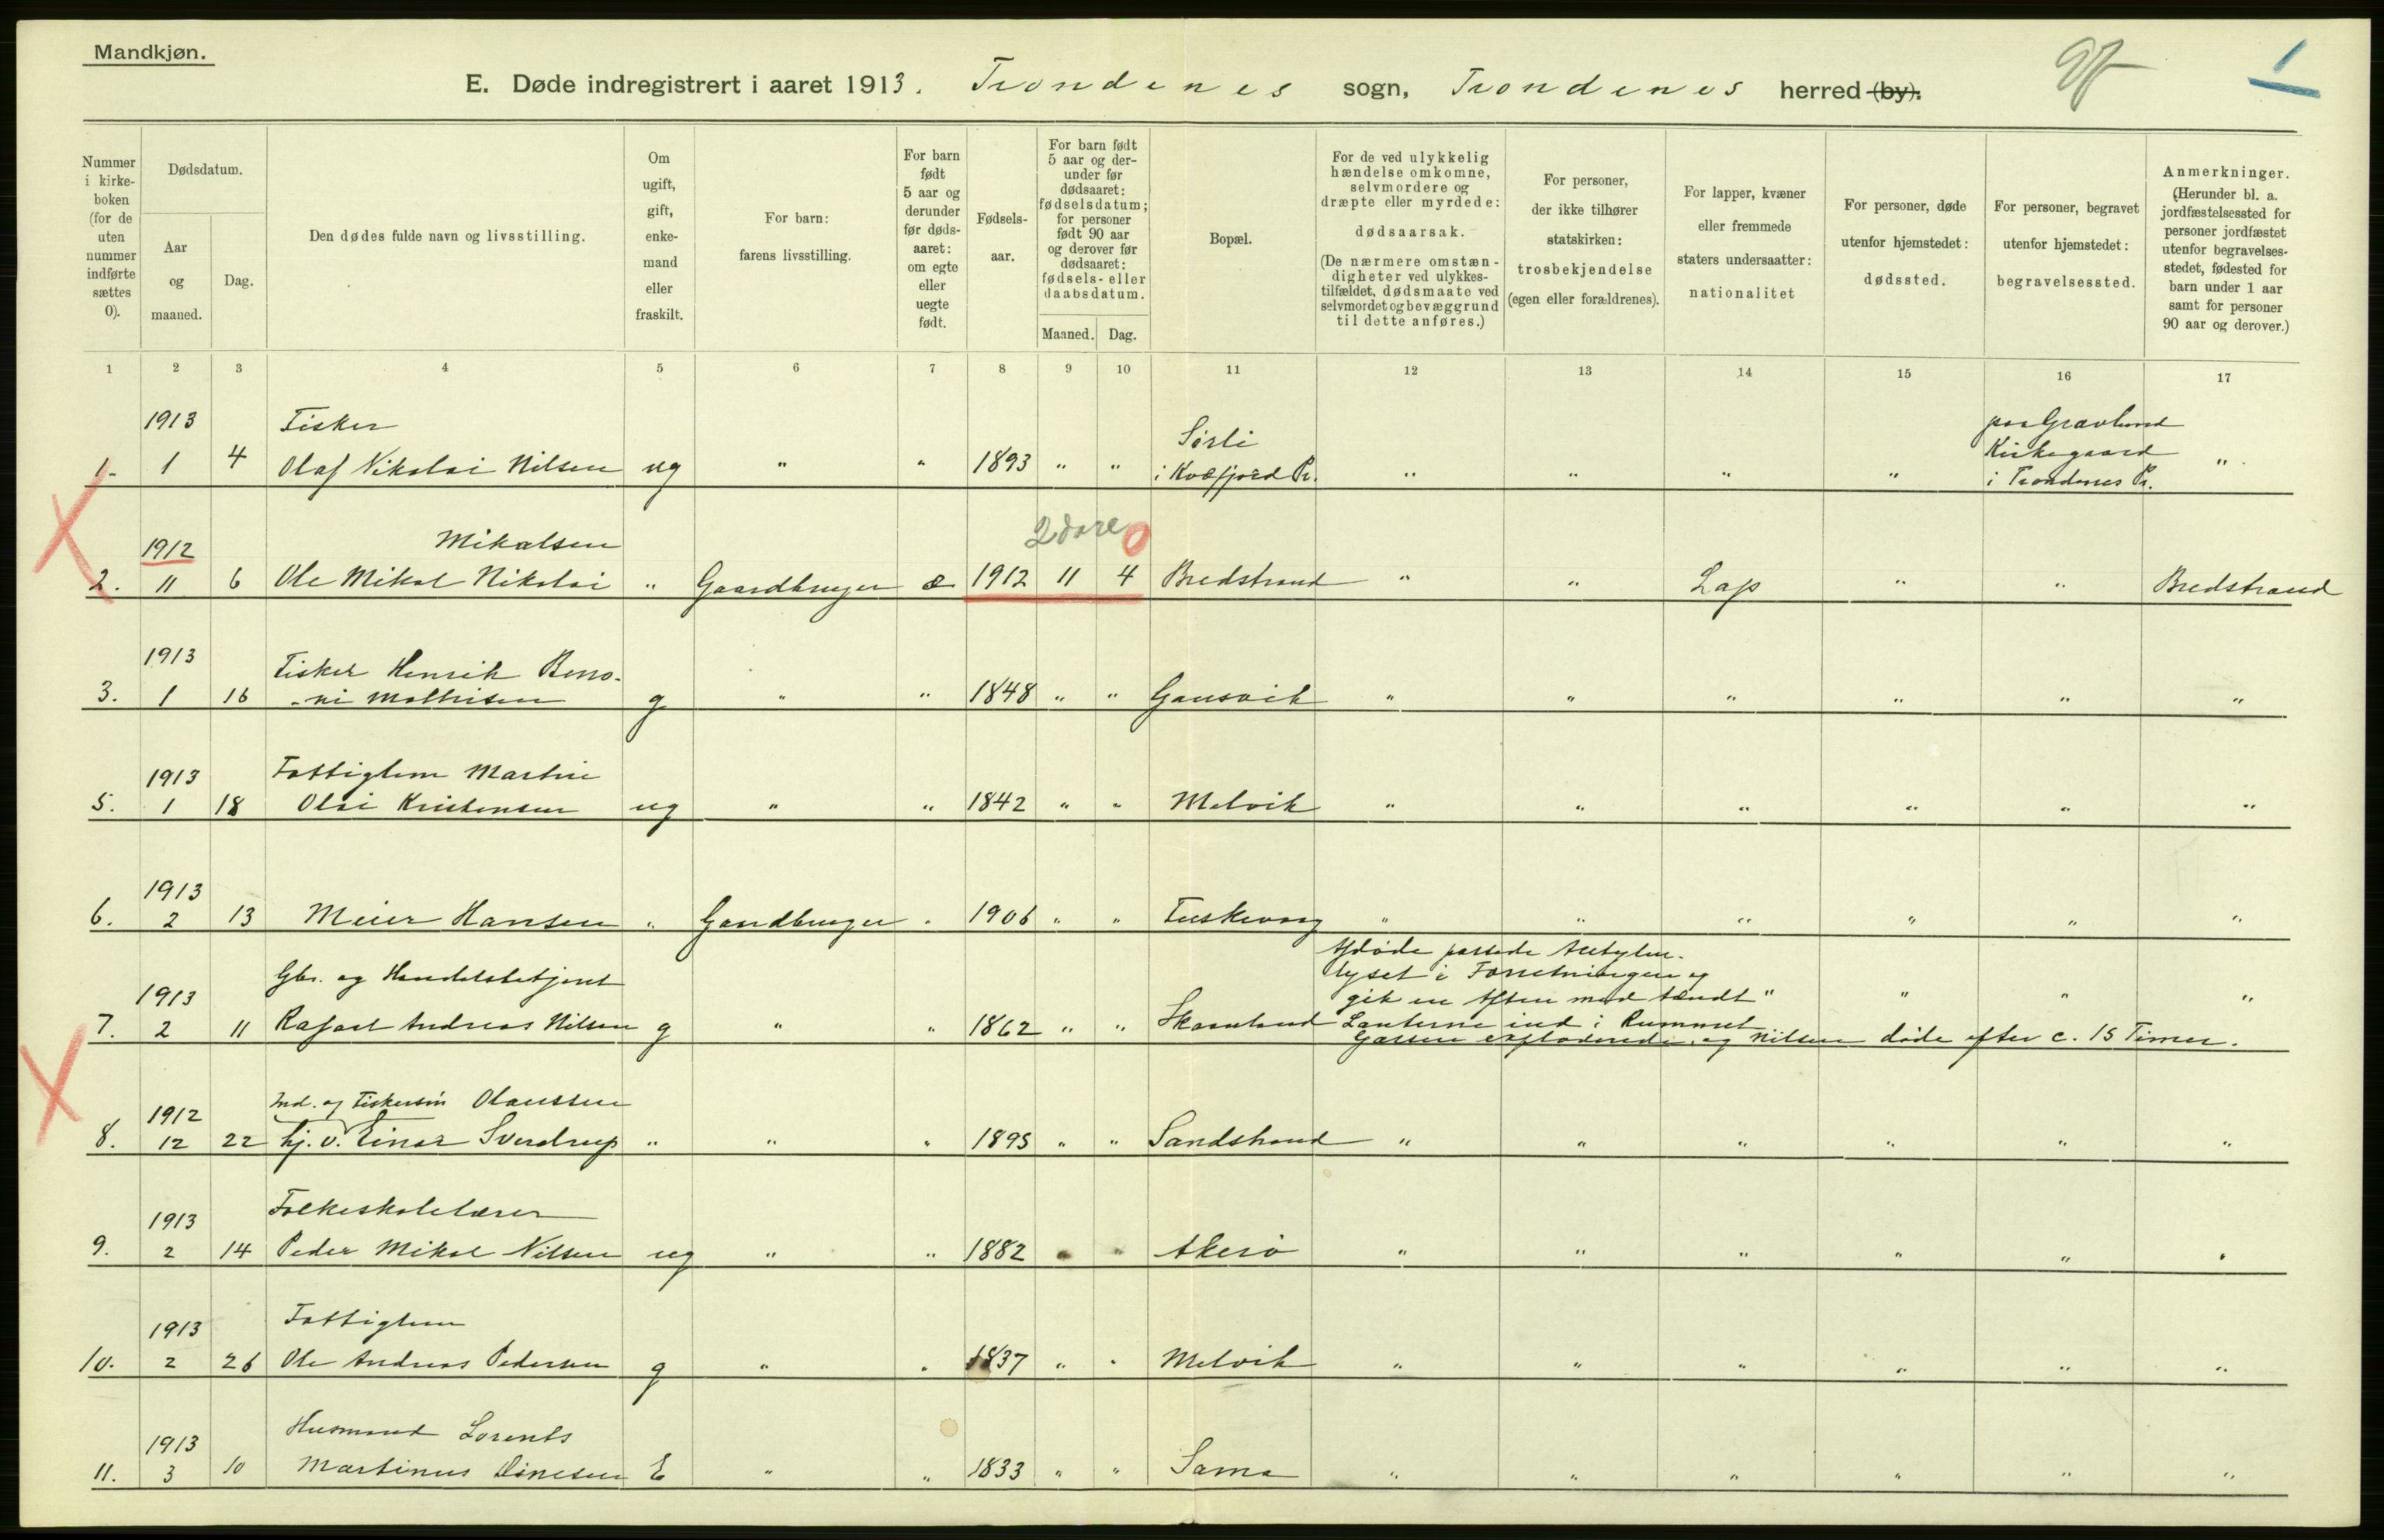 Mandkjøn.
E. Døde indregistrert i aaret 1913. Trondenes sogn, Trondenes herred (by).
1
Nummer i kirke-boken (for de uten nummer indførte sættes 0).
Dødsdatum.
Aar og maaned.
Dag.
Den dødes fulde navn og livsstilling.
Om ugift, gift, enke-mand eller fraskilt.
For barn: farens livsstilling.
For barn født 5 aar og derunder før døds-aaret: om egte eller uegte født.
Fødsels-aar.
For barn født 5 aar og der-under før dødsaaret: fødselsdatum; for personer født 90 aar og derover før dødsaaret: fødsels- eller daabsdatum.
Maaned.
Dag.
Bopæl.
For de ved ulykkelig hændelse omkomne, selvmordere og dræpte eller myrdede: dødsaarsak. (De nærmere omstæn-digheter ved ulykkes-tilfældet, dødsmaate ved selvmordet og bevæggrund til dette anføres.)
For personer, der ikke tilhører statskirken: trosbekjendelse (egen eller forældrenes).
For lapper, kvæner eller fremmede staters undersaatter: nationalitet
For personer, døde utenfor hjemstedet: dødssted.
For personer, begravet utenfor hjemstedet: begravelsessted.
Anmerkninger. (Herunder bl. a. jordfæstelsessted for personer jordfæstet utenfor begravelses-stedet, fødested for barn under 1 aar samt for personer 90 aar og derover.)
1 2 3 4 5 6 7 8 9 10 11 12 13 14 15 16 17
1913 Fisker Sørli paa Gravlund
1. 1 4 Olaf Nikolai Nilsen ug " " 1893 " " i Kvæfjord Pr. " " " " Kirkegaard "
i Trondenes Pr.
1912 Mikalsen 2 dage 0
2. 11 6 Ole Mikal Nikolai " Gaardbruger æ 1912 11 4 Bredstrand " " Lap " " Bredstrand
1913 Fisker Henrik Beno-
3. 1 16 -ni Mathisen g " " 1848 " " Gausvik " " " " " "
1913 Fattiglem Martin
5. 1 18 Olai Kristensen ug " " 1842 " " Melvik " " " " " "
1913
6. 2 13 Meier Hansen " Gaardbruger " 1906 " " Fuskevaag " " " " " "
Afdøde passede Acetylen-
Gbr. og Handelsbetjent lyset i Forretningen og
1913 gik en Aften med tændt " " " "
7. 2 11 Rafael Andreas Nilsen g " " 1862 " " Skaanland Lanterne ind i Rummet
Gassen exploderede, og Nilsen døde efter c. 15 Timer.
1912 Ind. og Fiskersøn Olaussen
8. 12 22 hj. v. Einar Sverdrup " " " 1895 " " Sandstrand " " " " " "
1913 Folkeskolelærer
9. 2 14 Peder Mikal Nilsen ug " " 1882 " " Akerø " " " " " "
1913 Fattiglem
10. 2 26 Ole Andreas Pedersen g " " 1837 " " Melvik " " " " " "
1913 Husmand Lorents
11. 3 10 Martinus Dinesen E " " 1833 " " Sama " " " " " "